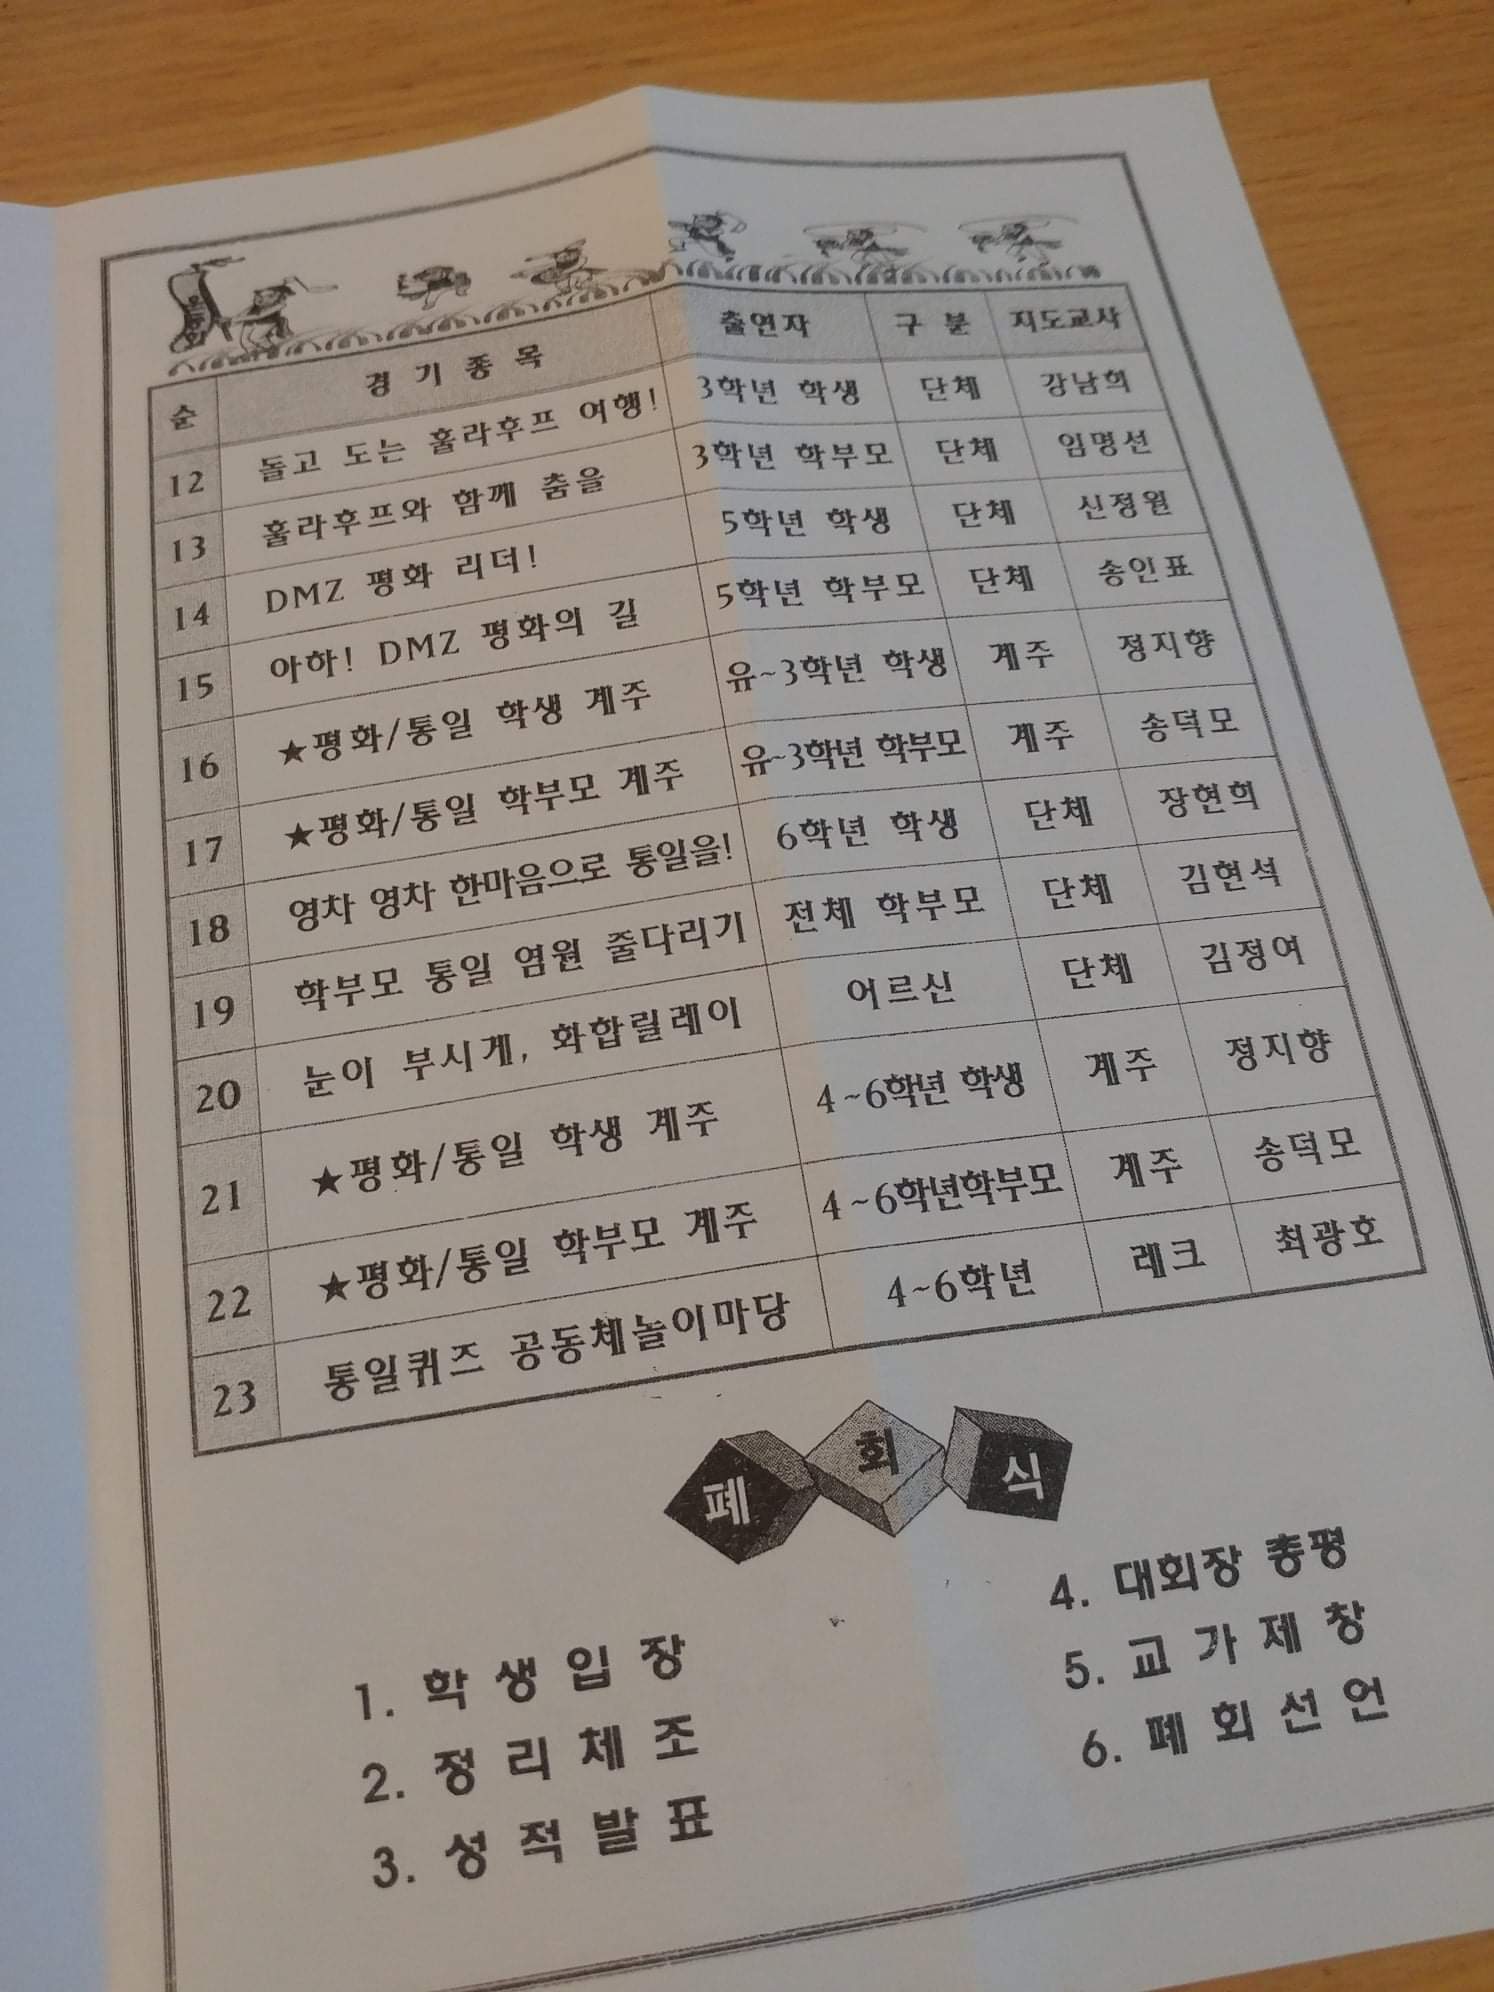 순 경 기 종 목 출연자 구 분 지도교사
12 돌고 도는 훌라후프 여행! 3학년 학생 단체 강남희
13 훌라후프와 함께 춤을 3학년 학부모 단체 임명선
14 DMZ 평화 리더! 5학년 학생 단체 신정원
15 아하! DMZ 평화의 길 5학년 학부모 단체 송인표
16 ★평화/통일 학생 계주 유~3학년 학생 계주 정지향
17 ★평화/통일 학부모 계주 유~3학년 학부모 계주 송덕모
18 영차 영차 한마음으로 통일을! 6학년 학생 단체 장현희
19 학부모 통일 염원 줄다리기 전체 학부모 단체 김현석
20 눈이 부시게, 화합릴레이 어르신 단체 김정여
21 ★평화/통일 학생 계주 4~6학년 학생 계주 정지향
22 ★평화/통일 학부모 계주 4~6학년학부모 계주 송덕모
23 통일퀴즈 공동체놀이마당 4~6학년 레크 최광호
폐회식
1. 학 생 입 장
2. 정 리 체 조
3. 성 적 발 표
4. 대회장 총평
5. 교 가 제 창
6. 폐 회 선 언